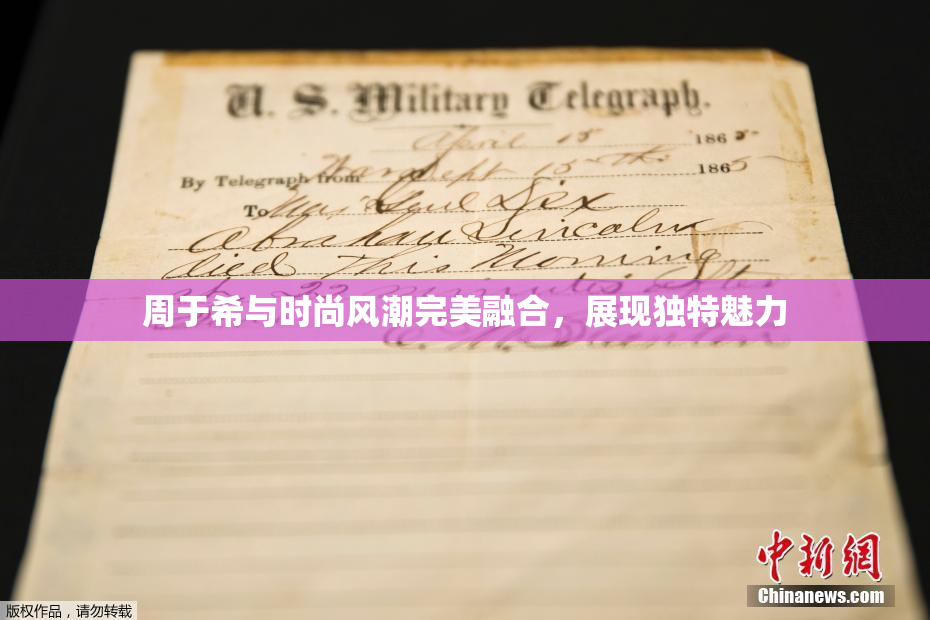 U. S. Military Telegraph.
April 15 1865
By Telegraph from War Dept 15th 1865
To Maj Genl Dix
Abraham Lincoln
died this Morning
22 minutes after
周于希与时尚风潮完美融合，展现独特魅力
E. M. Stanton
中新网
Chinanews.com
版权作品，请勿转载